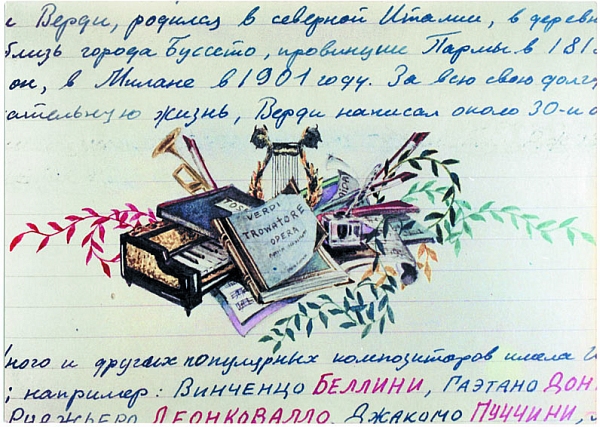 е Верди, родился в северной Италии, в деревн
близь города Буссето, провинции Пармы в 181
он, в Милане в 1901 году. За всю свою долг
ательную жизнь, Верди написал около 30-и о
TOS
VERDI
TROWATORE
OPERA
ного и других популярных композиторов имела И
; например: ВИНЧЕНЦО БЕЛЛИНИ, ГАЭТАНО ДОН
РУДЖЬЕРО ЛЕОНКОВАЛЛО, ДЖАКОМО ПУЧЧИНИ,